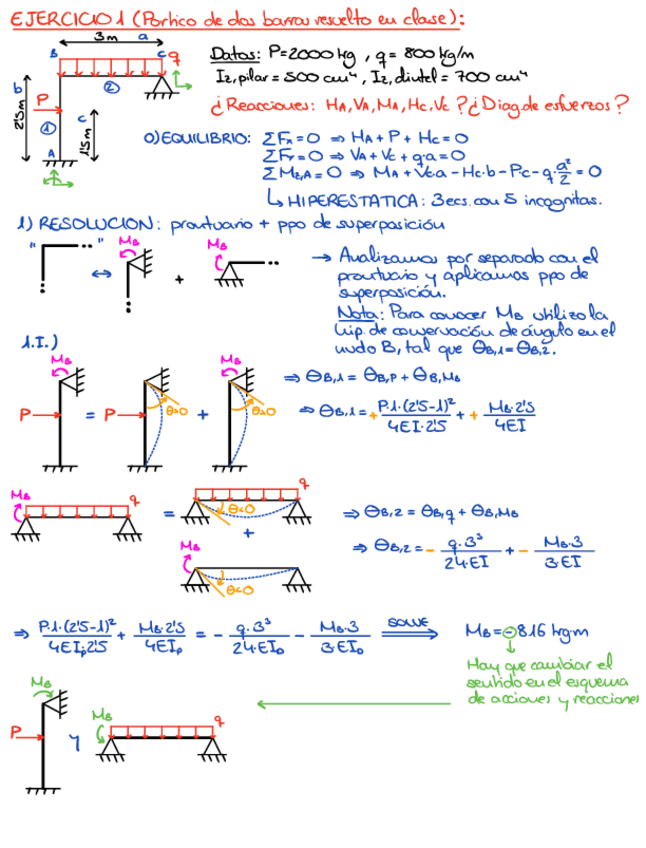 EJERCICIO 1 (Pórtico de dos barras resuelto en clase):
3m a
B C q
Datos: P=2000 kg, q= 800 kg/m
Iz,pilar = 500 cm⁴, Iz,dintel = 700 cm⁴
b ②
P
2'5m ① c 1'5m
A
¿Reacciones: HA, VA, MA, HC, VC? ¿Diag. de esfuerzos?
0) EQUILIBRIO: ΣFx=0 ⇒ HA + P + HC = 0
ΣFY=0 ⇒ VA + VC + q·a = 0
ΣMz,A=0 ⇒ MA + VC·a - HC·b - P·c - q·a²/2 = 0
↳ HIPERESTATICA: 3 ecs. con 5 incognitas.
1) RESOLUCION: prontuario + ppo de superposición
" " ↔ MB + MB
→ Analizamos por separado con el
prontuario y aplicamos ppo de
superposición.
Nota: Para conocer MB utilizo la
hip. de conservación de ángulo en el
nudo B, tal que ΘB,1 = ΘB,2.
1.I.)
MB MB
P = P θ>0 + θ>0
⇒ ΘB,1 = ΘB,P + ΘB,MB
⇒ ΘB,1 = + P·1·(2'5-1)²/4EI·2'5 + + MB·2'5/4EI
MB q = θ<0 q
+
MB θ<0
⇒ ΘB,2 = ΘB,q + ΘB,MB
⇒ ΘB,2 = - q·3³/24·EI + - MB·3/3·EI
⇒ P·1·(2'5-1)²/4EIp2'5 + MB·2'5/4EIp = - q·3³/24·EID - MB·3/3·EID SOLVE ⇒ MB = -816 kg·m
Hay que cambiar el
sentido en el esquema
de acciones y reacciones
MB
P y MB q